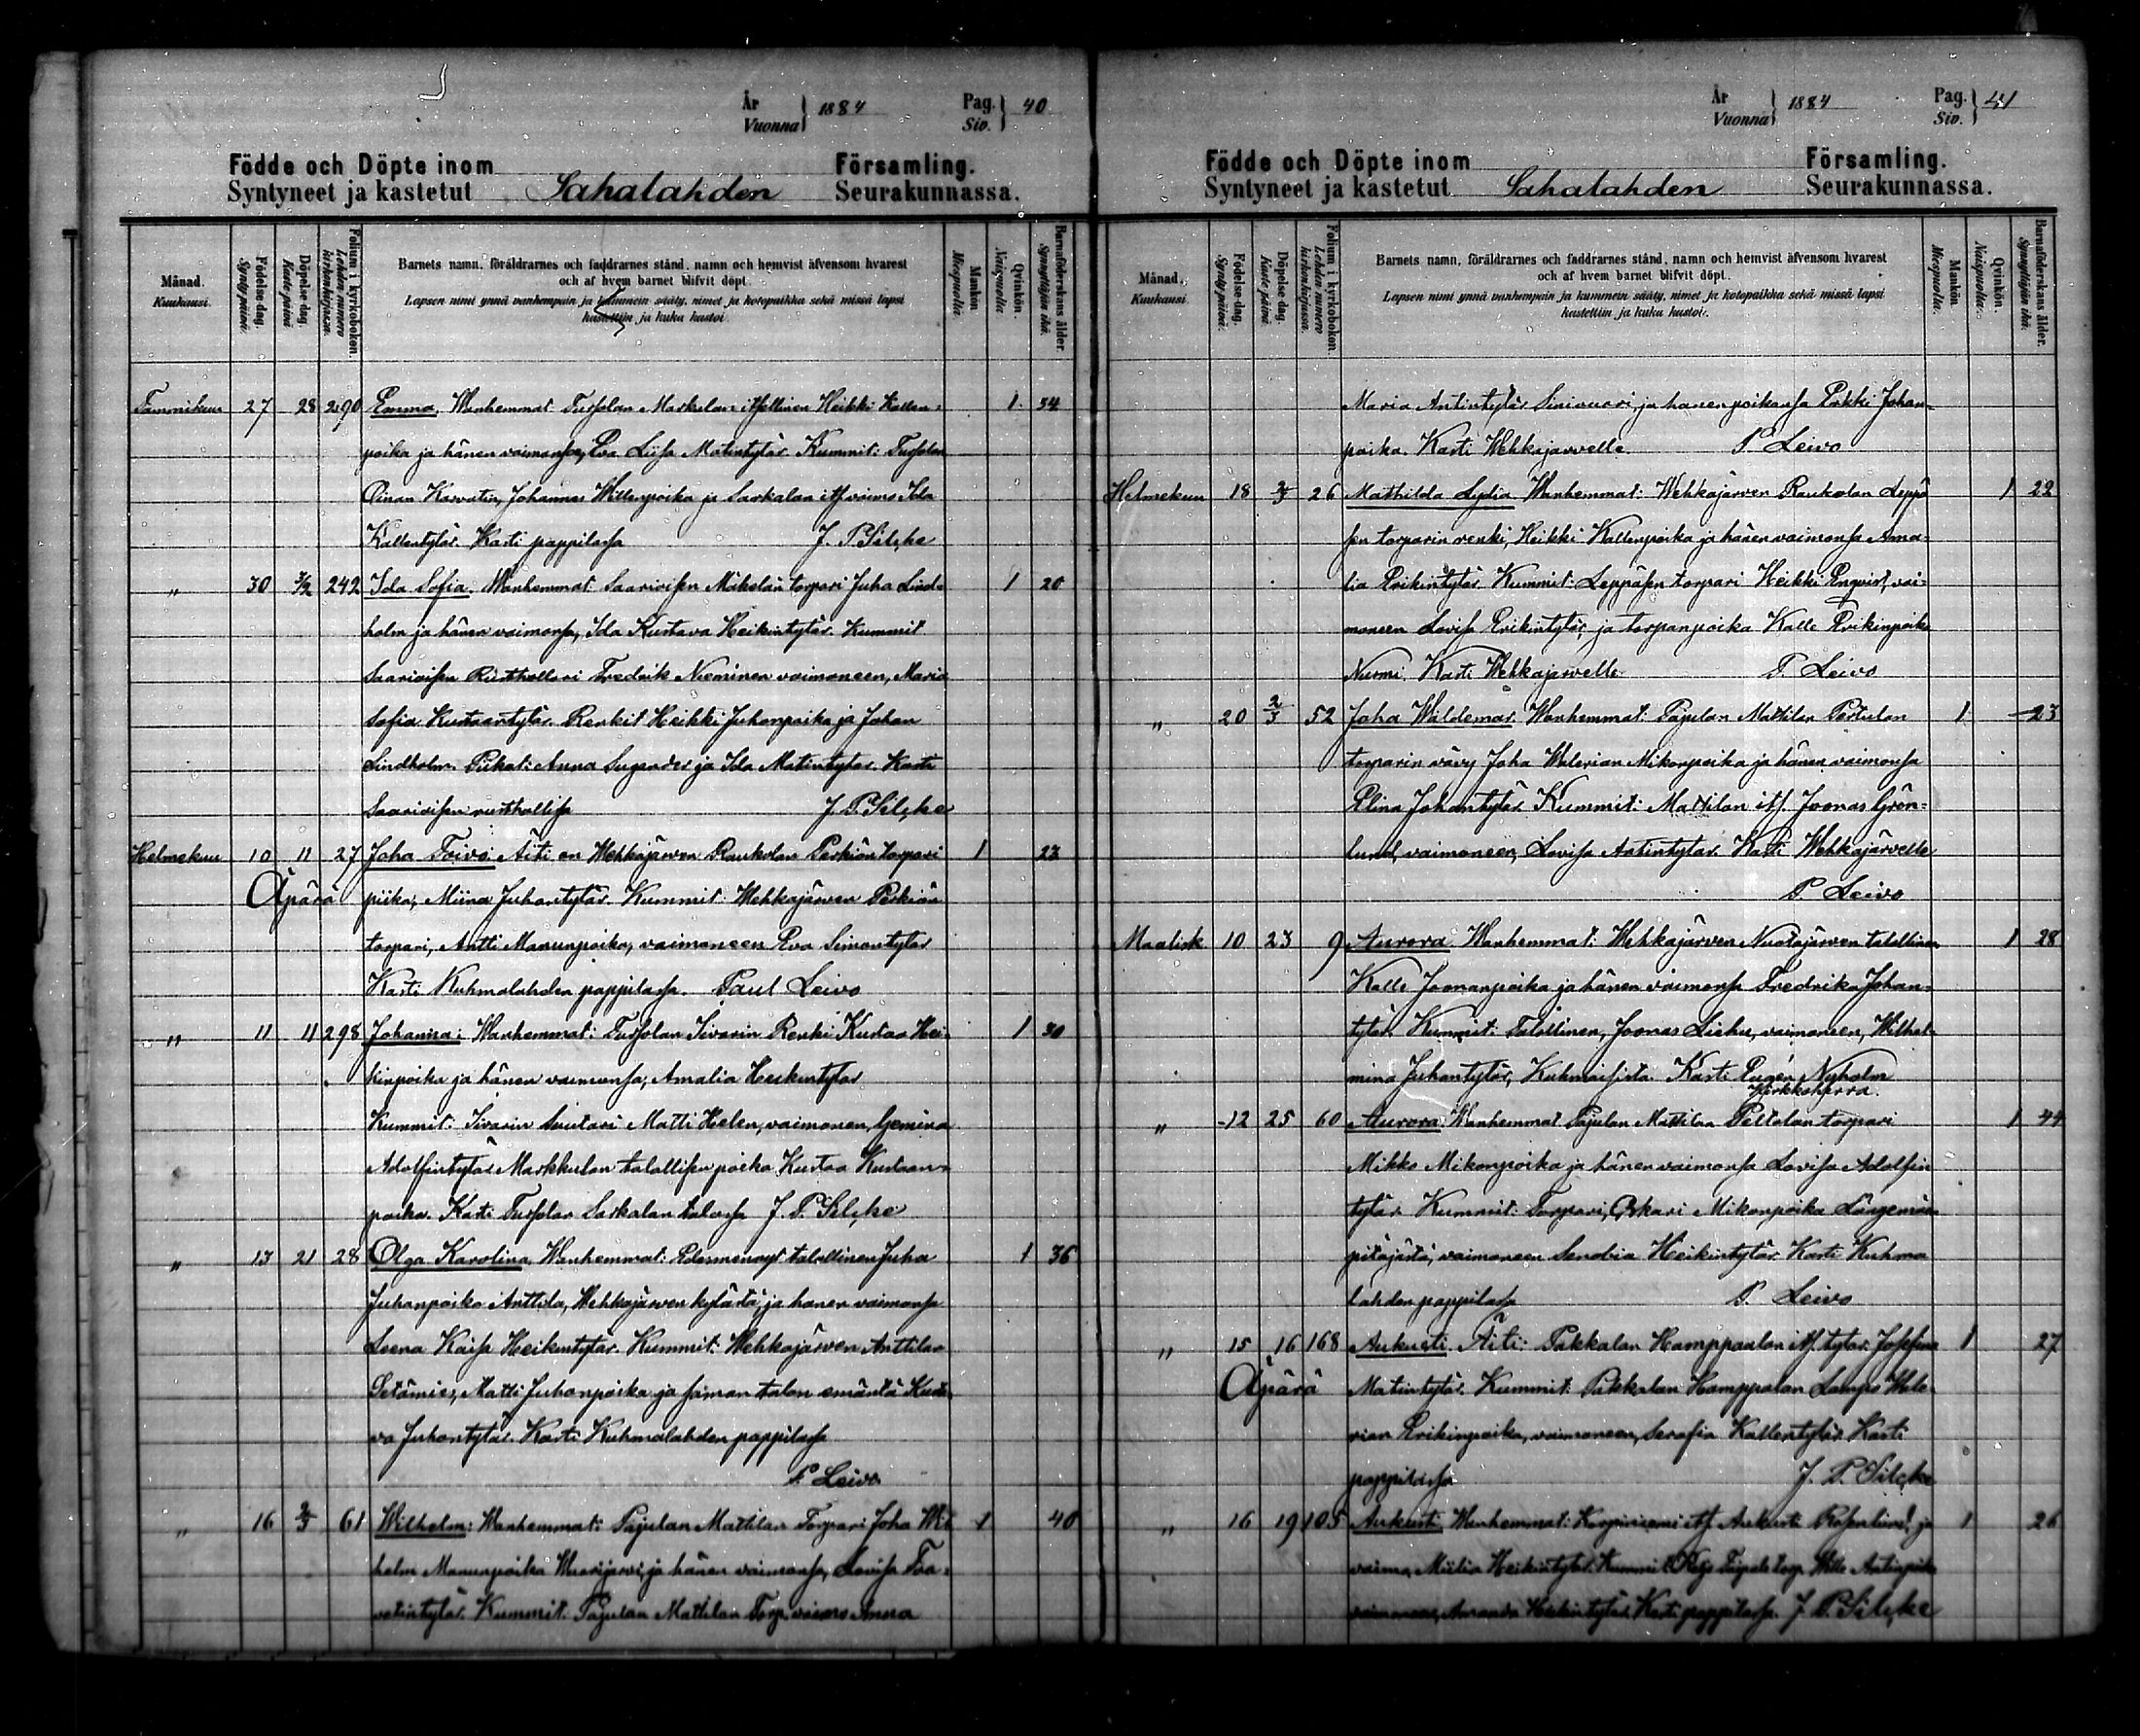 År
Vuonna 1884 Pag.
Siv. 40
Födde och Döpte inom Församling.
Syntyneet ja kastetut Sahalahden Seurakunnassa.
Månad.
Kuukausi.
Födelse dag.
Synty päivä.
Döpelse dag.
Kaste päivä
Folium i kyrkoboken.
Lehden numero
kirkonkirjassa.
Barnets namn, föräldrarnes och faddrarnes stånd, namn och hemvist äfvensom hvarest
och af hvem barnet blifvit döpt.
Lapsen nimi ynnä vanhempain ja kummein sääty, nimet ja kotopaikka sekä missä lapsi
kastettiin ja kuka kastoi
Mankön
Miespuolia.
Qvinkön.
Naispuolia
Barnaföderskans ålder.
Synnyttäjän ikä.
Tammikuu 27 28 290 Emma, Wanhemmat Tursolan Markulan itsellinen Heikki Kallen- 1 34
poika ja hänen vaimonsa, Eva Liisa Matintytär. Kummit: Tursolan
Johannes Willenpoika ja Sarkalan its vaimo Ida
Kallentytär. Kasti pappilassa J. P. Silcke
" 30 3/2 242 Ida Sofia. Wanhemmat: Saarioisen Mäkelän torpari Juha Lind- 1 20
holm ja hänen vaimonsa, Ida Kustava Heikintytär. Kummit
Saarioisen Rusthollari Fredrik Nieminen vaimoneen, Maria
Sofia Kustaantytär. Renkit Heikki Juhonpoika ja Johan
Lindholm. Piikat: Anna Sugander ja Ida Matintytär. Kasti
Saarioisen rusthollissa J. P. Silcke
Helmekuu 10 11 27 Joha Toivo: Äiti on Wehkajärven Raukolan Perkiön torpari 1 23
Äpärä piika, Miina Juhontytär. Kummit: Wehkajärven Perkiön
torpari, Antti Manunpoika, vaimoneen Eva Simontytär
Kasti Kuhmalahden pappilassa. Paul Leivo
" 11 11 298 Johanna: Wanhemmat: Tursolan Iivarin Renki Kustaa Hei- 1 30
kinpoika ja hänen vaimonsa, Amalia Heikintytär
Kummit: Iivarin Suutari Matti Helen, vaimonen, Gemina
Adolfintytär Markkulan talollisen poika Kustaa Kustaan-
poika. Kasti Tursolan Sarkalan talossa J. P. Silcke
" 13 21 28 Olga Karolina, Wanhemmat: Edesmennyt talollinen Juha 1 36
Juhanpoika Anttila, Wehkajärven kylästä, ja hänen vaimonsa
Leena Kaisa Heikintytär. Kummit: Wehkajärven Anttilan
Setämies, Matti Juhonpoika ja saman talon emäntä Kusta-
va Juhontytär. Kasti Kuhmalahden pappilassa
P. Leivo
" 16 2/3 61 Wilhelm: Wanhemmat: Pajulan Mattilan Torpari Joha Wil- 1 40
helm Manunpoika Wuorijärvi, ja hänen vaimonsa, Lovisa Taa-
vetintytär. Kummit: Pajulan Mattilan Torp. vaimo Anna
År
Vuonna 1884 Pag.
Siv. 41
Födde och Döpte inom Församling.
Syntyneet ja kastetut Sahalahden Seurakunnassa.
Månad.
Kuukausi
Födelse dag.
Synty päivä.
Döpelse dag.
Kaste päivä
Folium i kyrkoboken.
Lehden numero
kirkonkirjassa.
Barnets namn, föräldrarnes och faddrarnes stånd, namn och hemvist äfvensom hvarest
och af hvem barnet blifvit döpt.
Lapsen nimi ynnä vanhempain ja kummein sääty, nimet ja kotopaikka sekä missä lapsi
kastettiin ja kuka kastoi.
Mankön
Miespuolia.
Qvinkön.
Naispuolia.
Barnaföderskans ålder.
Synnyttäjän ikä.
Maria Antintytär Sinivuori, ja hänen poikansa Erkki Johan-
poika. Kasti Wehkajärvelle. P. Leivo
Helmekuu 18 2/3 26 Mathilda Lydia Wanhemmat: Wehkajärven Raukolan Leppä 1 22
sen torparin renki, Heikki Kallenpoika ja hänen vaimonsa Ama-
lia Erikintytär. Kummit: Leppäsen torpari Heikki Enqvist, vai-
moneen Lovisa Erikintytär, ja torpanpoika Kalle Erikinpoika
Nurmi. Kasti Wehkajärvelle P. Leivo
" 20 2/3 52 Joha Waldemar. Wanhemmat: Pajulan Mattilan Pertulan 1 23
torparin vävy Joha Walerian Mikonpoika ja hänen vaimonsa
Elina Johantytär. Kummit: Mattilan its. Joonas Grön-
lund, vaimoneen, Lovisa Antintytär. Kasti Wehkajärvelle
P. Leivo
Maalisk 10 23 9 Aurora Wanhemmat: Wehkajärven Nuotajärven talollinen 1 28
Kalle Joonanpoika ja hänen vaimonsa Fredrika Johan-
tytär. Kummit: Talollinen, Joonas vaimoneen, Wilhel-
mina Juhantytär, Kuhmaisista. Kasti Eugén Nyholm
Kirkkoherra.
" 12 25 60 Aurora: Wanhemmat Pajulan Mattilan Peltolan torpari 1 44
Mikko Mikonpoika ja hänen vaimonsa Lovisa Adolfin
tytär. Kummit: Torpari, Oskari Mikonpoika Längemäen
pitäjästä, vaimoneen Senobia Heikintytär. Kasti Kuhma
lahden pappilassa P. Leivo
" 15 16 168 Aukusti. Äiti: Pakkalan Hamppaalan its. tytär Josefina 1 27
Äpärä Matintytär. Kummit: Pakkalan Hamppalan Lampo Wale-
rian Erikinpoika, vaimoneen, Serafia Kallentytär. Kasti
pappilassa J. P. Silcke
" 16 19 105 Aukusti, Wanhemmat: Korpiniemi its. Aukusti Rosenlund ja 1 26
vaimo, Miilia Heikintytär. Kummit: torp. Wille Antinpoika
vaimoneen, Amanda Heikintytär. Kasti pappilassa. J. P. Silcke